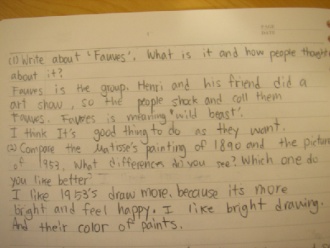 (1) Write about 'Fauves', What is it and how people thought
about it?
Fauves is the group. Henri and his friend did a
art show, so the people shock and call them
Fauves. Fauves is meaning "wild beast".
I think It's good thing to do as they want.
(2) Compare the Matisse's painting of 1890 and the picture
of 1953. What differences do you see? Which one do
you like better
I like 1953's draw more. because its more
bright and feel happy. I like bright drawing.
And their color of paints.